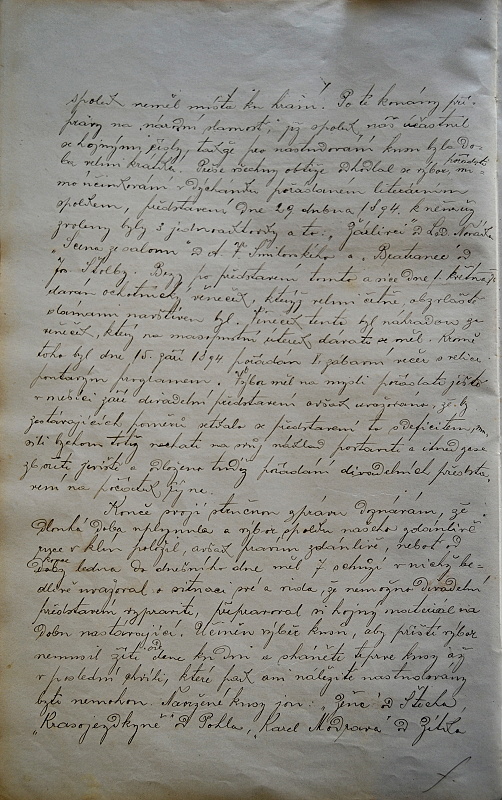 spolek neměl místa ku hraní. Po té konány pří-
pravy na "národní slavnost," jíž spolek náš účastnil
se hojnými čísly, takže pro nastudování kusu byla do-
ba velmi krátká. Přese všechny obtíže odhodlal se výbor, mi-
mo účinkování v dýchánku pořádaném literárním pořádati
spolkem, představení dne 29 dubna 1894. k němuž
zvoleny byly 3 jednoaktovky a to: "Žárlivci" od Nováka
"Scena ze salonu" od Šmilovského a "Beatrice" od
Jos. Štolby. Brzy po představení tomto a sice dne 1. května po-
řádán ochotnický věneček, kterýž velmi četně, obzvláště
navštíven byl. Věneček tento byl náhradou za
věneček, který na masopustní úterek dávati se měl. Kromě
toho byl dne 15. září 1894 pořádán zábavní večer s velice
programem. Výbor měl na mysli pořádati ještě
v měsíci září divadelní představení avšak uvažováno, že by
pozůstávajících poměrů setkalo se představení to s deficitem, mu-
sili bychom totiž nechati na svůj náklad postaviti a ihned zase
zbořiti jeviště a odloženo tudíž pořádání divadelních předsta-
vení na počátek října.
Konče svoji stručnou zprávu doznávám, že
dlouhá doba uplynula a výbor spolku našeho zdánlivě
ruce v klín položil, avšak pravím zdánlivě, neboť od
konce
doby ledna do dnešního dne měl 7 schůzí v nichž be-
dlivě uvažoval o situaci své a vida, že nemožno divadelní
představení vypraviti, připravoval si hojný materiál na
dobu nastávající. Učiněn výběr kusů, aby příští výbor
nemusil žíti ode dne ku dni a sháněti teprve kusy až
v poslední chvíli, které pak ani náležitě nastudovány
býti nemohou. Navržené kusy jsou: "Žena" od Štecha,
"Krasojezdkyně" od Pohla, "Karel Modrava" od Zítka